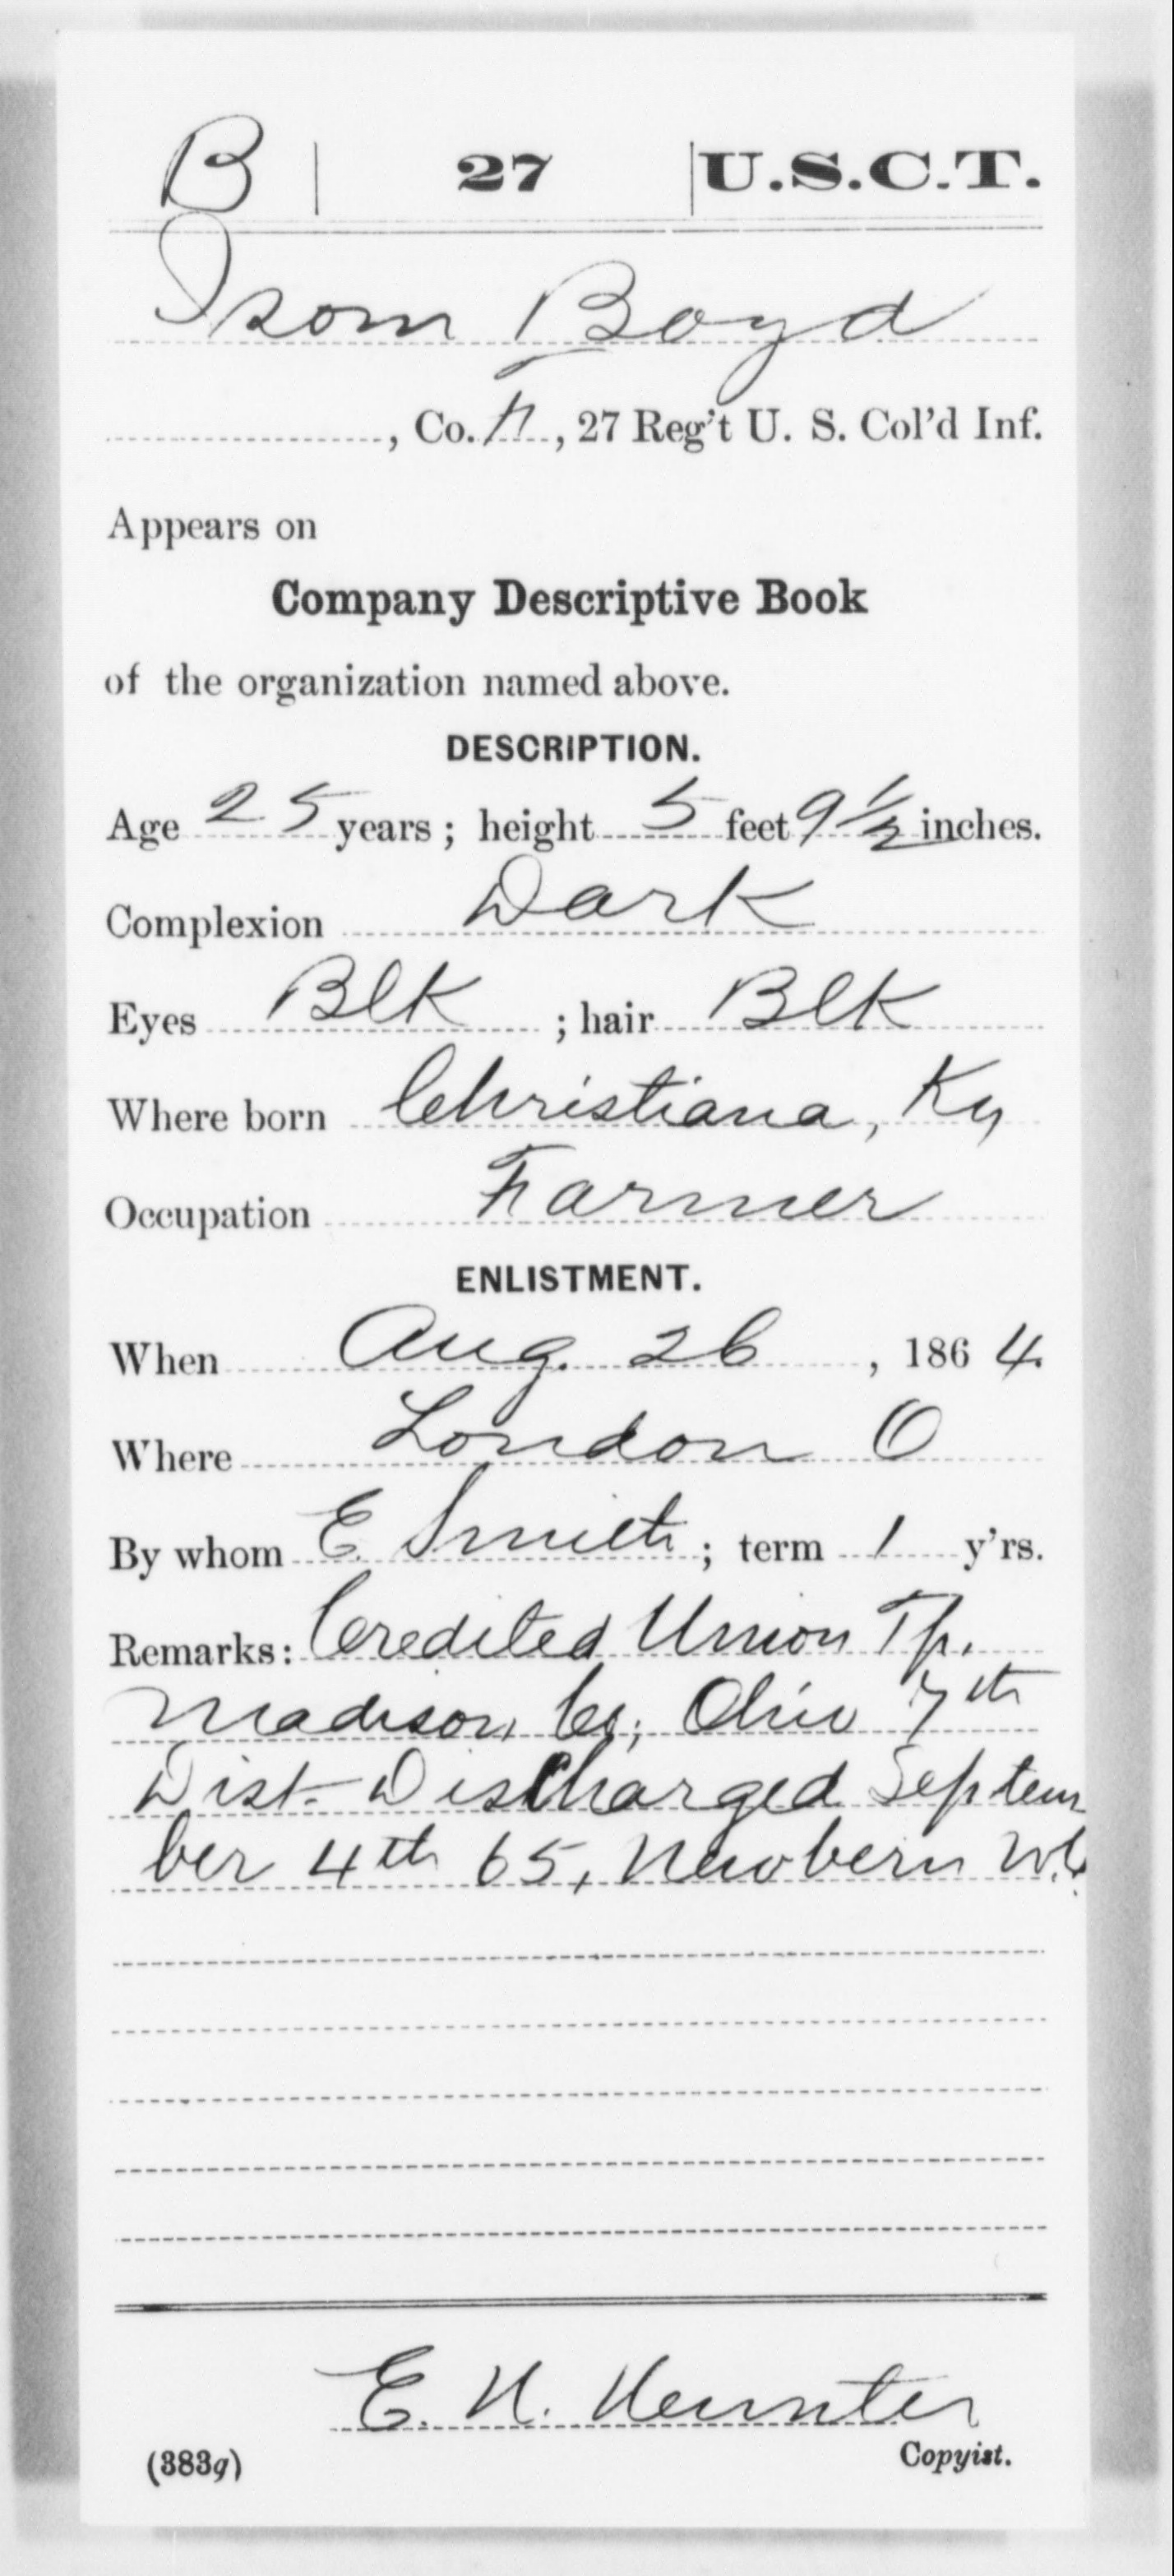 B | 27 | U.S.C.T.
Isom Boyd
, Co. F, 27 Reg't U. S. Col'd Inf.
Appears on
Company Descriptive Book
of the organization named above.
DESCRIPTION.
Age 25 years; height 5 feet 9 1/2 inches.
Complexion Dark
Eyes Blk ; hair Blk
Where born Christiana, Ky
Occupation Farmer
ENLISTMENT.
When Aug. 26, 1864.
Where London O
By whom E. Smith; term 1 y'rs.
Remarks: Credited Union Tp.
Madison Co, Ohio 7th
Dist. Discharged Septem
ber 4th 65, Newbern N.C.
E. H. Hunter
Copyist.
(383g)